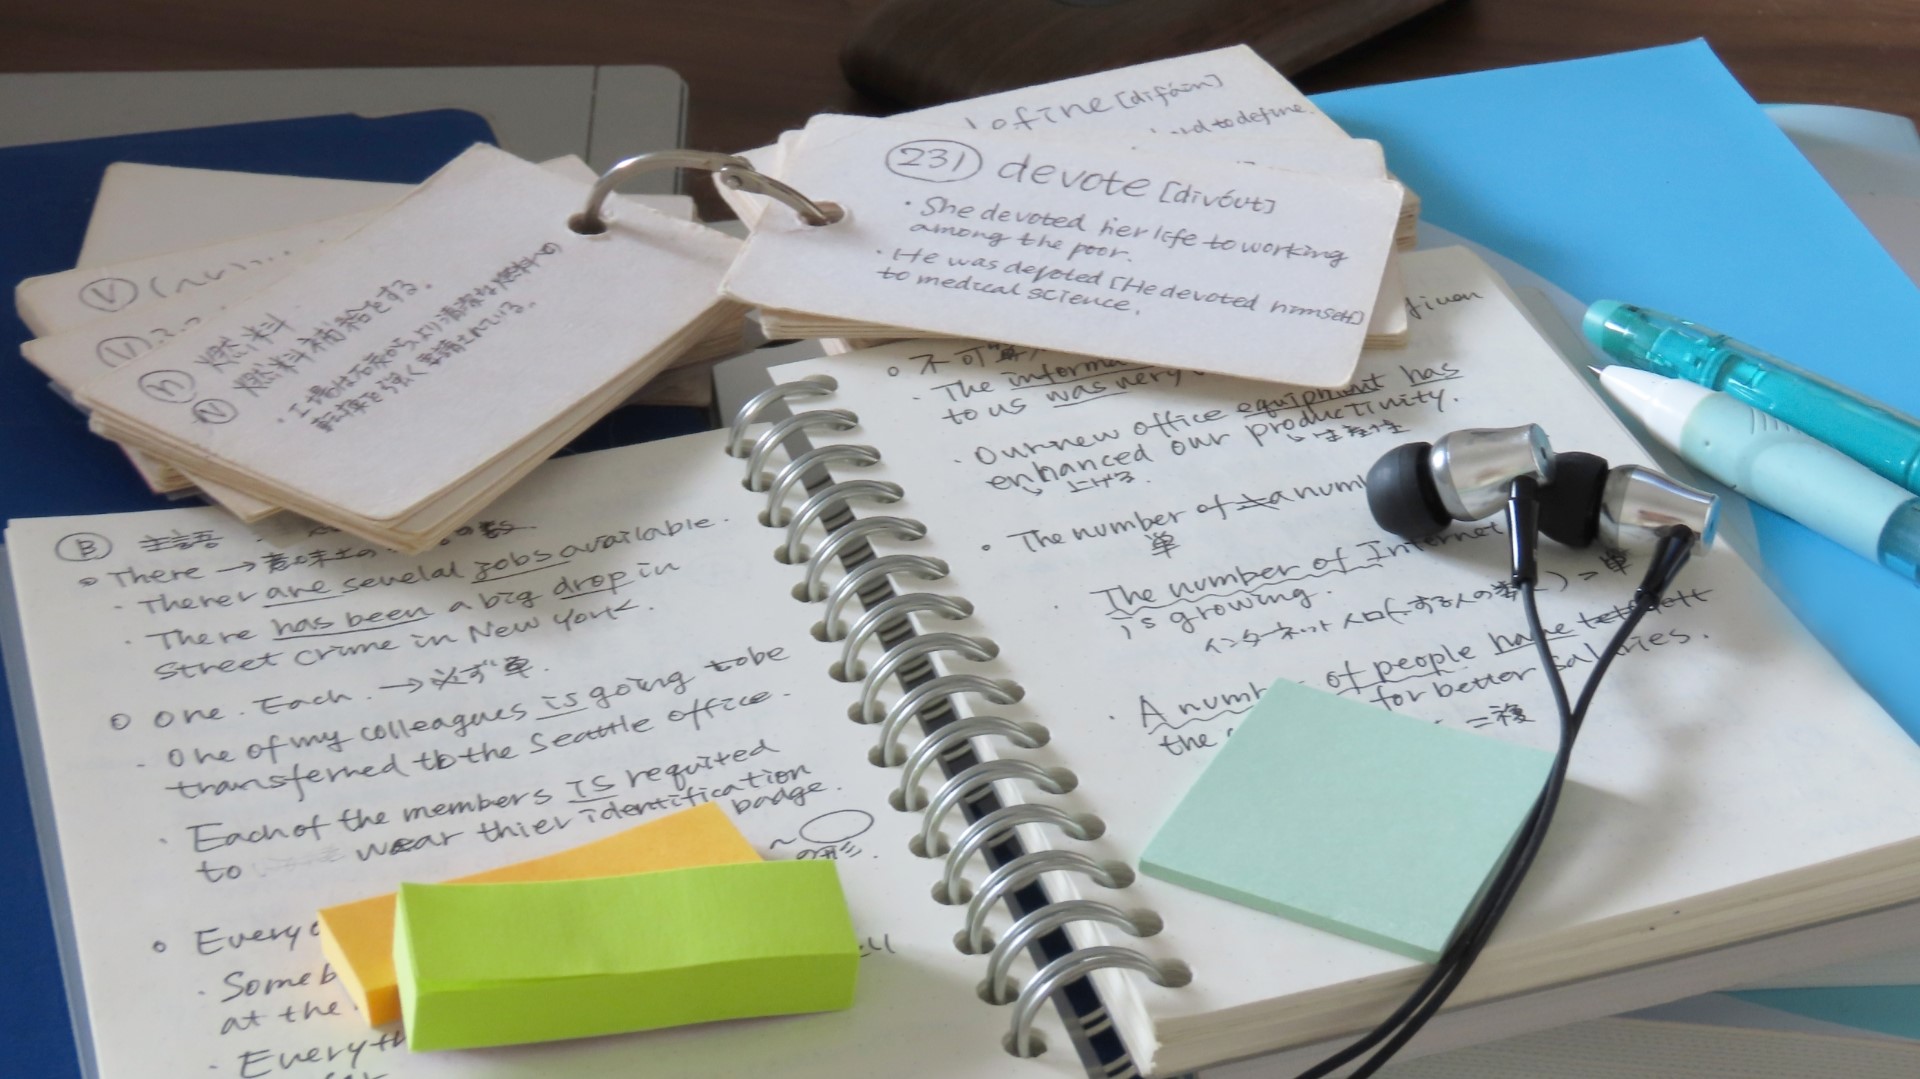 [difáin]
to define.
231 devote [divóut]
・She devoted her life to working
among the poor.
・He was devoted [He devoted himself]
to medical science.
V
V
n 燃料
V 燃料補給をする。
・工場は石炭からより清潔な燃料への
転換を強く要請されている。
B 主語
There → 意味上の
・Therer are sevelal jobs available.
・There has been a big drop in
street crime in New York.
One. Each. → 必ず単.
・One of my colleagues is going to be
transferred to the Seattle office.
・Each of the members is required
to wear thier identification
badge.
〜 の形.
Every
・Some
at the
・Every
不可算
・The
to us was very
・Our new office equipment has
enhanced our productivity.
上げる. 生産性
The number of a num
単
・The number of Internet
is growing.
インターネット人口(する人の数)=単
・A number of people have
the for better salaries.
=複